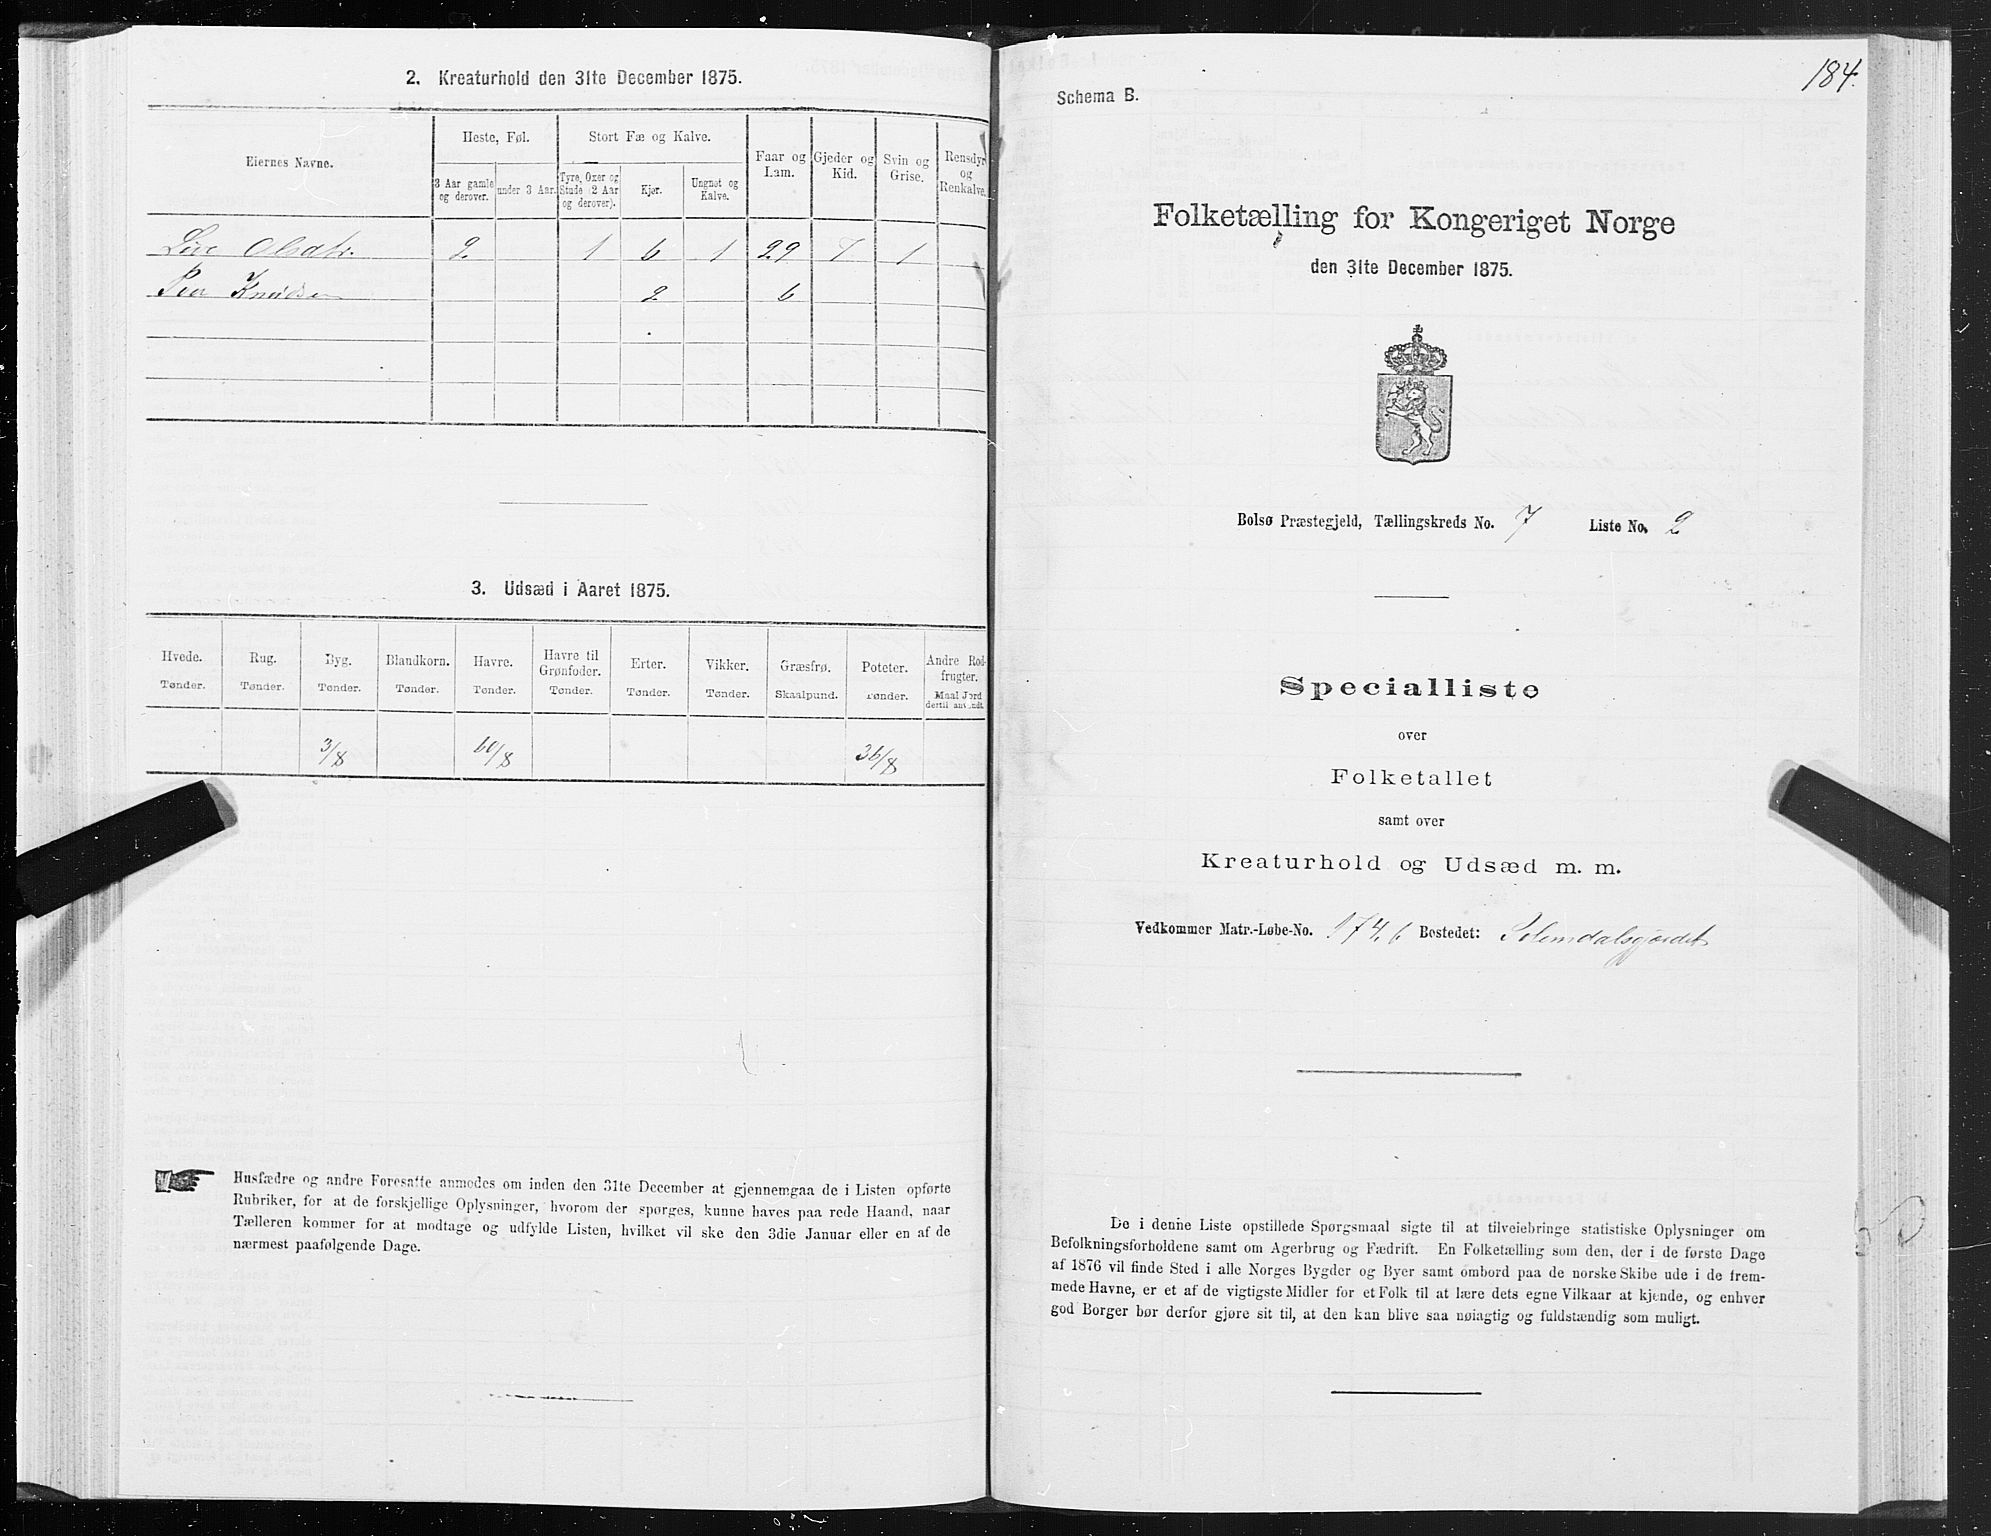 2. Kreaturhold den 31te December 1875.
Eiernes Navne.
Heste, Føl.
Stort Fæ og Kalve.
Faar og Lam.
Gjeder og Kid.
Svin og Grise.
Rensdyr og Renkalve.
3 Aar gamle og derover.
under 3 Aar.
Tyre, Oxer og Stude (2 Aar og derover).
Kjør.
Ungnøt og Kalve.
Live Olsdtr. 2 1 6 1 29 7 1
Peer Knudsen 2 6
3. Udsæd i Aaret 1875.
Hvede. Rug. Byg. Blandkorn. Havre. Havre til Grønfoder. Erter. Vikker. Græsfrø. Poteter. Andre Rodfrugter.
Tønder. Tønder. Tønder. Tønder. Tønder. Tønder. Tønder. Tønder. Skaalpund. Tønder. Maal Jord dertil anvendt.
3/8 60/8 36/8
Husfædre og andre Foresatte anmodes om inden den 31te December at gjennemgaa de i Listen opførte
Rubriker, for at de forskjellige Oplysninger, hvorom der spørges, kunne haves paa rede Haand, naar
Tælleren kommer for at modtage og udfylde Listen, hvilket vil ske den 3die Januar eller en af de
nærmest paafølgende Dage.
184.
Schema B.
Folketælling for Kongeriget Norge
den 31te December 1875.
Bolsø Præstegjeld, Tællingskreds No. 7 Liste No. 2
Specialliste
over
Folketallet
samt over
Kreaturhold og Udsæd m. m.
Vedkommer Matr.-Løbe-No. 174, 6 Bostedet: Solemdalsgjærdet
De i denne Liste opstillede Spørgsmaal sigte til at tilveiebringe statistiske Oplysninger om
Befolkningsforholdene samt om Agerbrug og Fædrift. En Folketælling som den, der i de første Dage
af 1876 vil finde Sted i alle Norges Bygder og Byer samt ombord paa de norske Skibe ude i de frem-
mede Havne, er et af de vigtigste Midler for et Folk til at lære dets egne Vilkaar at kjende, og enhver
god Borger bør derfor gjøre sit til, at den kan blive saa nøiagtig og fuldstændig som muligt.